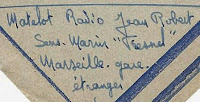 Matelot Radio Jean Robert
Sous. Marin "Fresnel"
Marseille. gare.
étranger